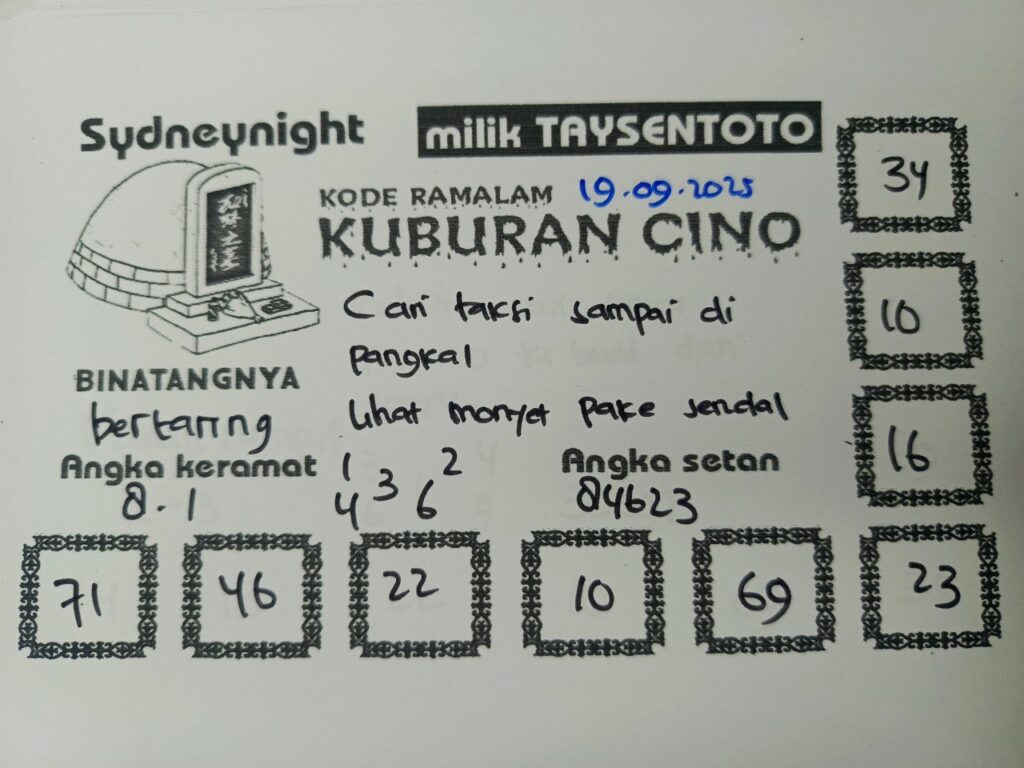 Sydneynight
milik TAYSENTOTO
KODE RAMALAM 19.09.2025
KUBURAN CINO
Cari taksi sampai di
pangkal
lihat monyet pake sendal
BINATANGNYA
bertaring
Angka keramat
8.1
1 3 2
4 6
Angka setan
84623
34
10
16
71 46 22 10 69 23